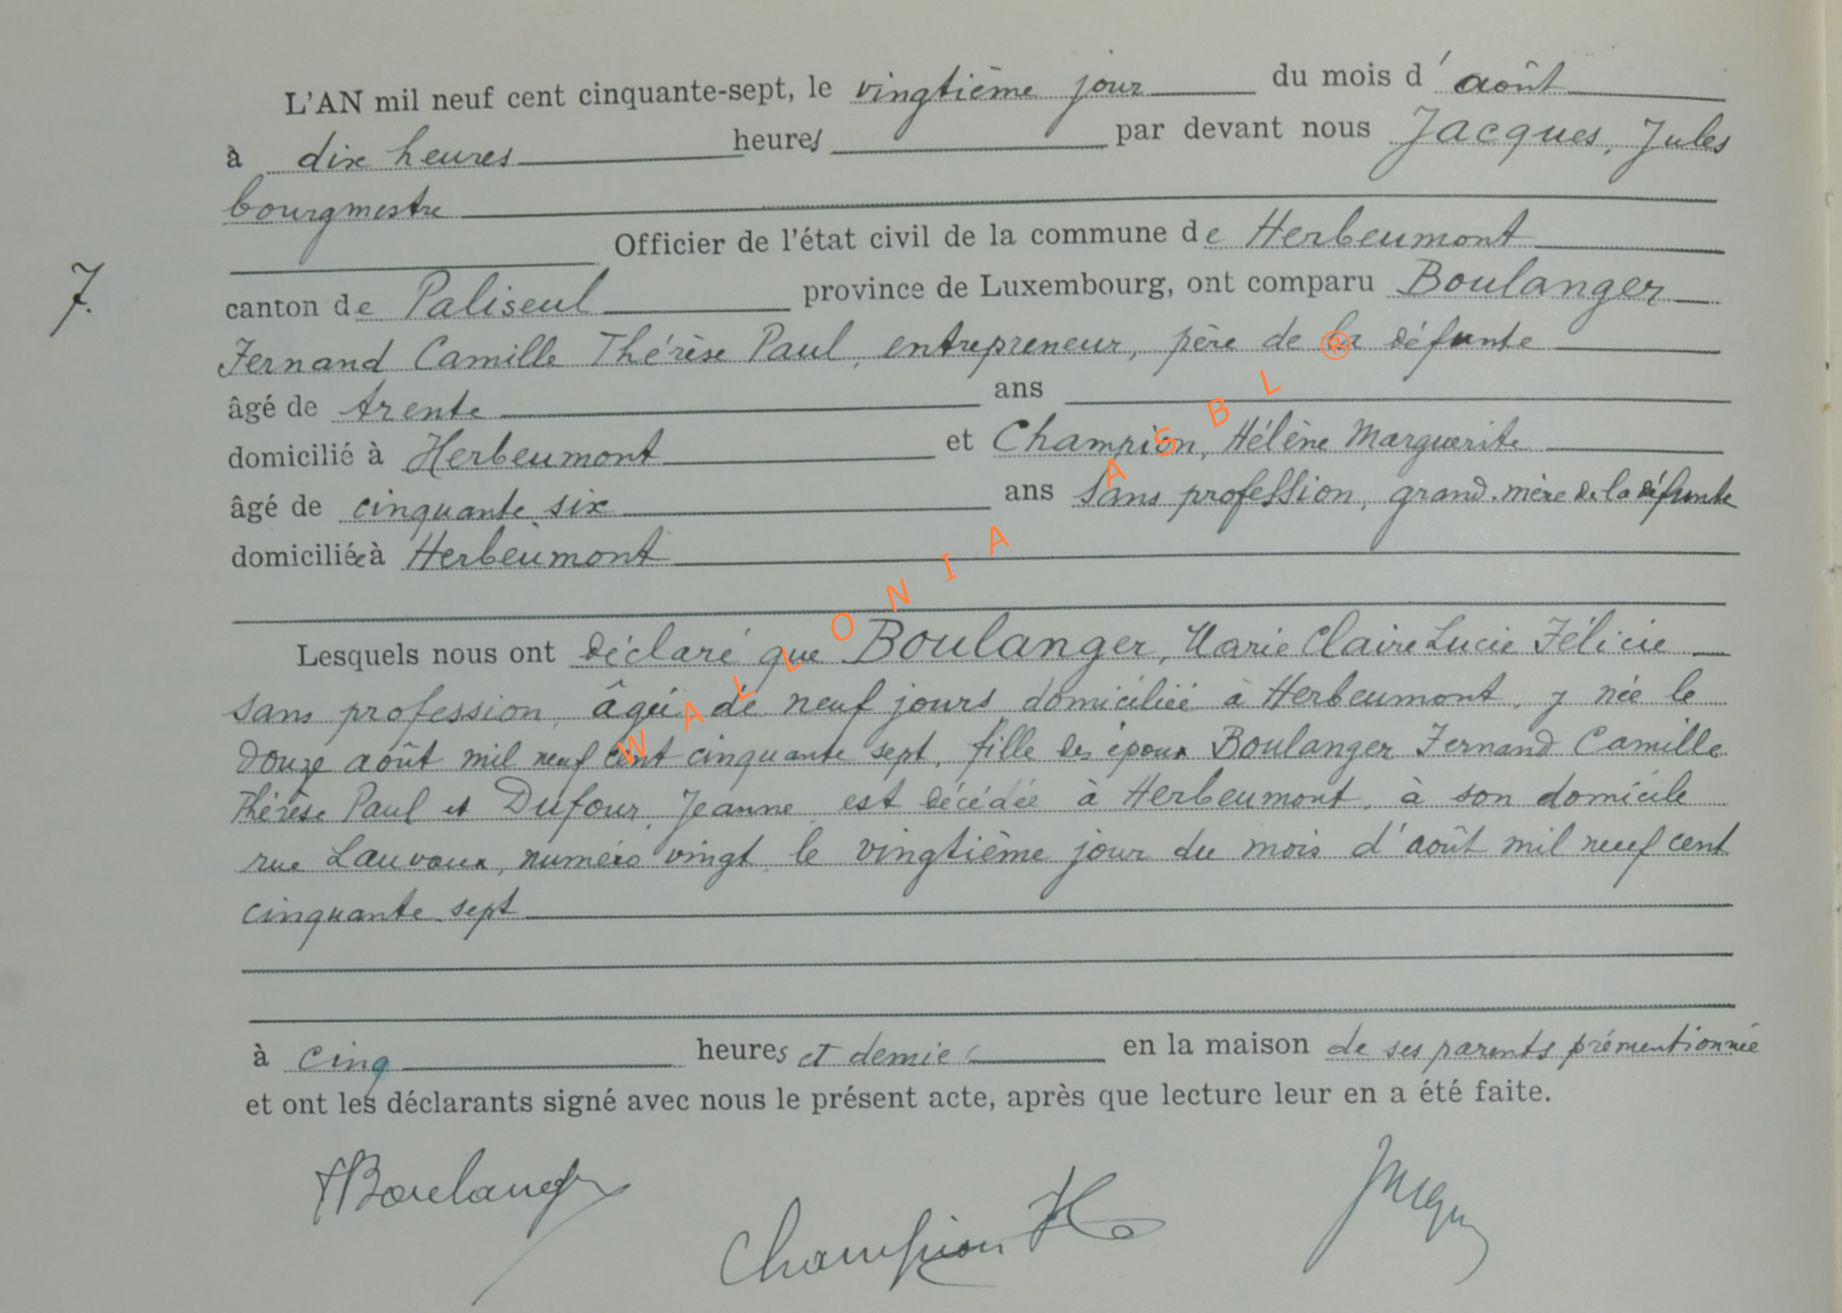 L'AN mil neuf cent cinquante-sept, le vingtième jour du mois d'août
à dix heures heures par devant nous Jacques, Jules
bourgmestre
Officier de l'état civil de la commune de Herbeumont
7.
canton de Paliseul province de Luxembourg, ont comparu Boulanger
Fernand Camille Thérèse Paul, entrepreneur, père de la défunte
âgé de trente ans
domicilié à Herbeumont et Champion, Hélène Marguerite
âgé de cinquante six ans sans profession, grand-mère de la défunte
domiciliée à Herbeumont
Lesquels nous ont déclaré que Boulanger, Marie Claire Lucie Félicie
sans profession, âgée de neuf jours, domiciliée à Herbeumont, y née le
douze août mil neuf cent cinquante sept, fille des époux Boulanger Fernand Camille
Thérèse Paul et Dufour, Jeanne, est décédée à Herbeumont, à son domicile
rue Lauvaux, numéro vingt, le vingtième jour du mois d'août mil neuf cent
cinquante sept
à cinq heures et demie en la maison de ses parents prémentionnée
et ont les déclarants signé avec nous le présent acte, après que lecture leur en a été faite.
FBoulanger
Champion H
Jacques
WALLONIA ASBL ®